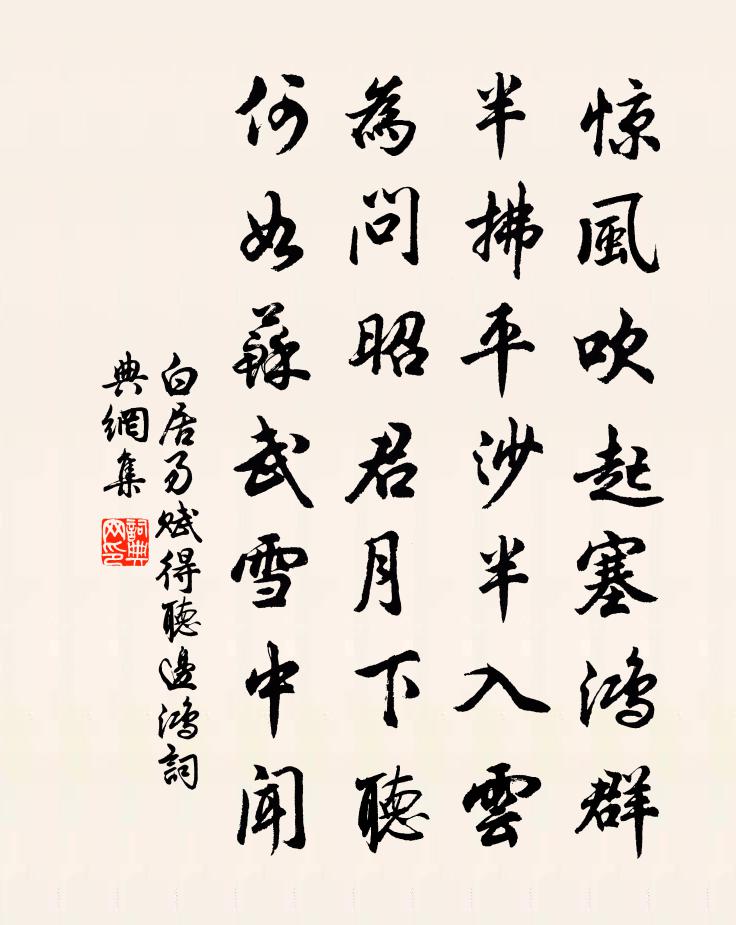 惊風吹起塞鴻群
半拂平沙半入雲
為問昭君月下聽
何如蘇武雪中聞
白居易賦得聽邊鴻詞
典網集
詞典
网印